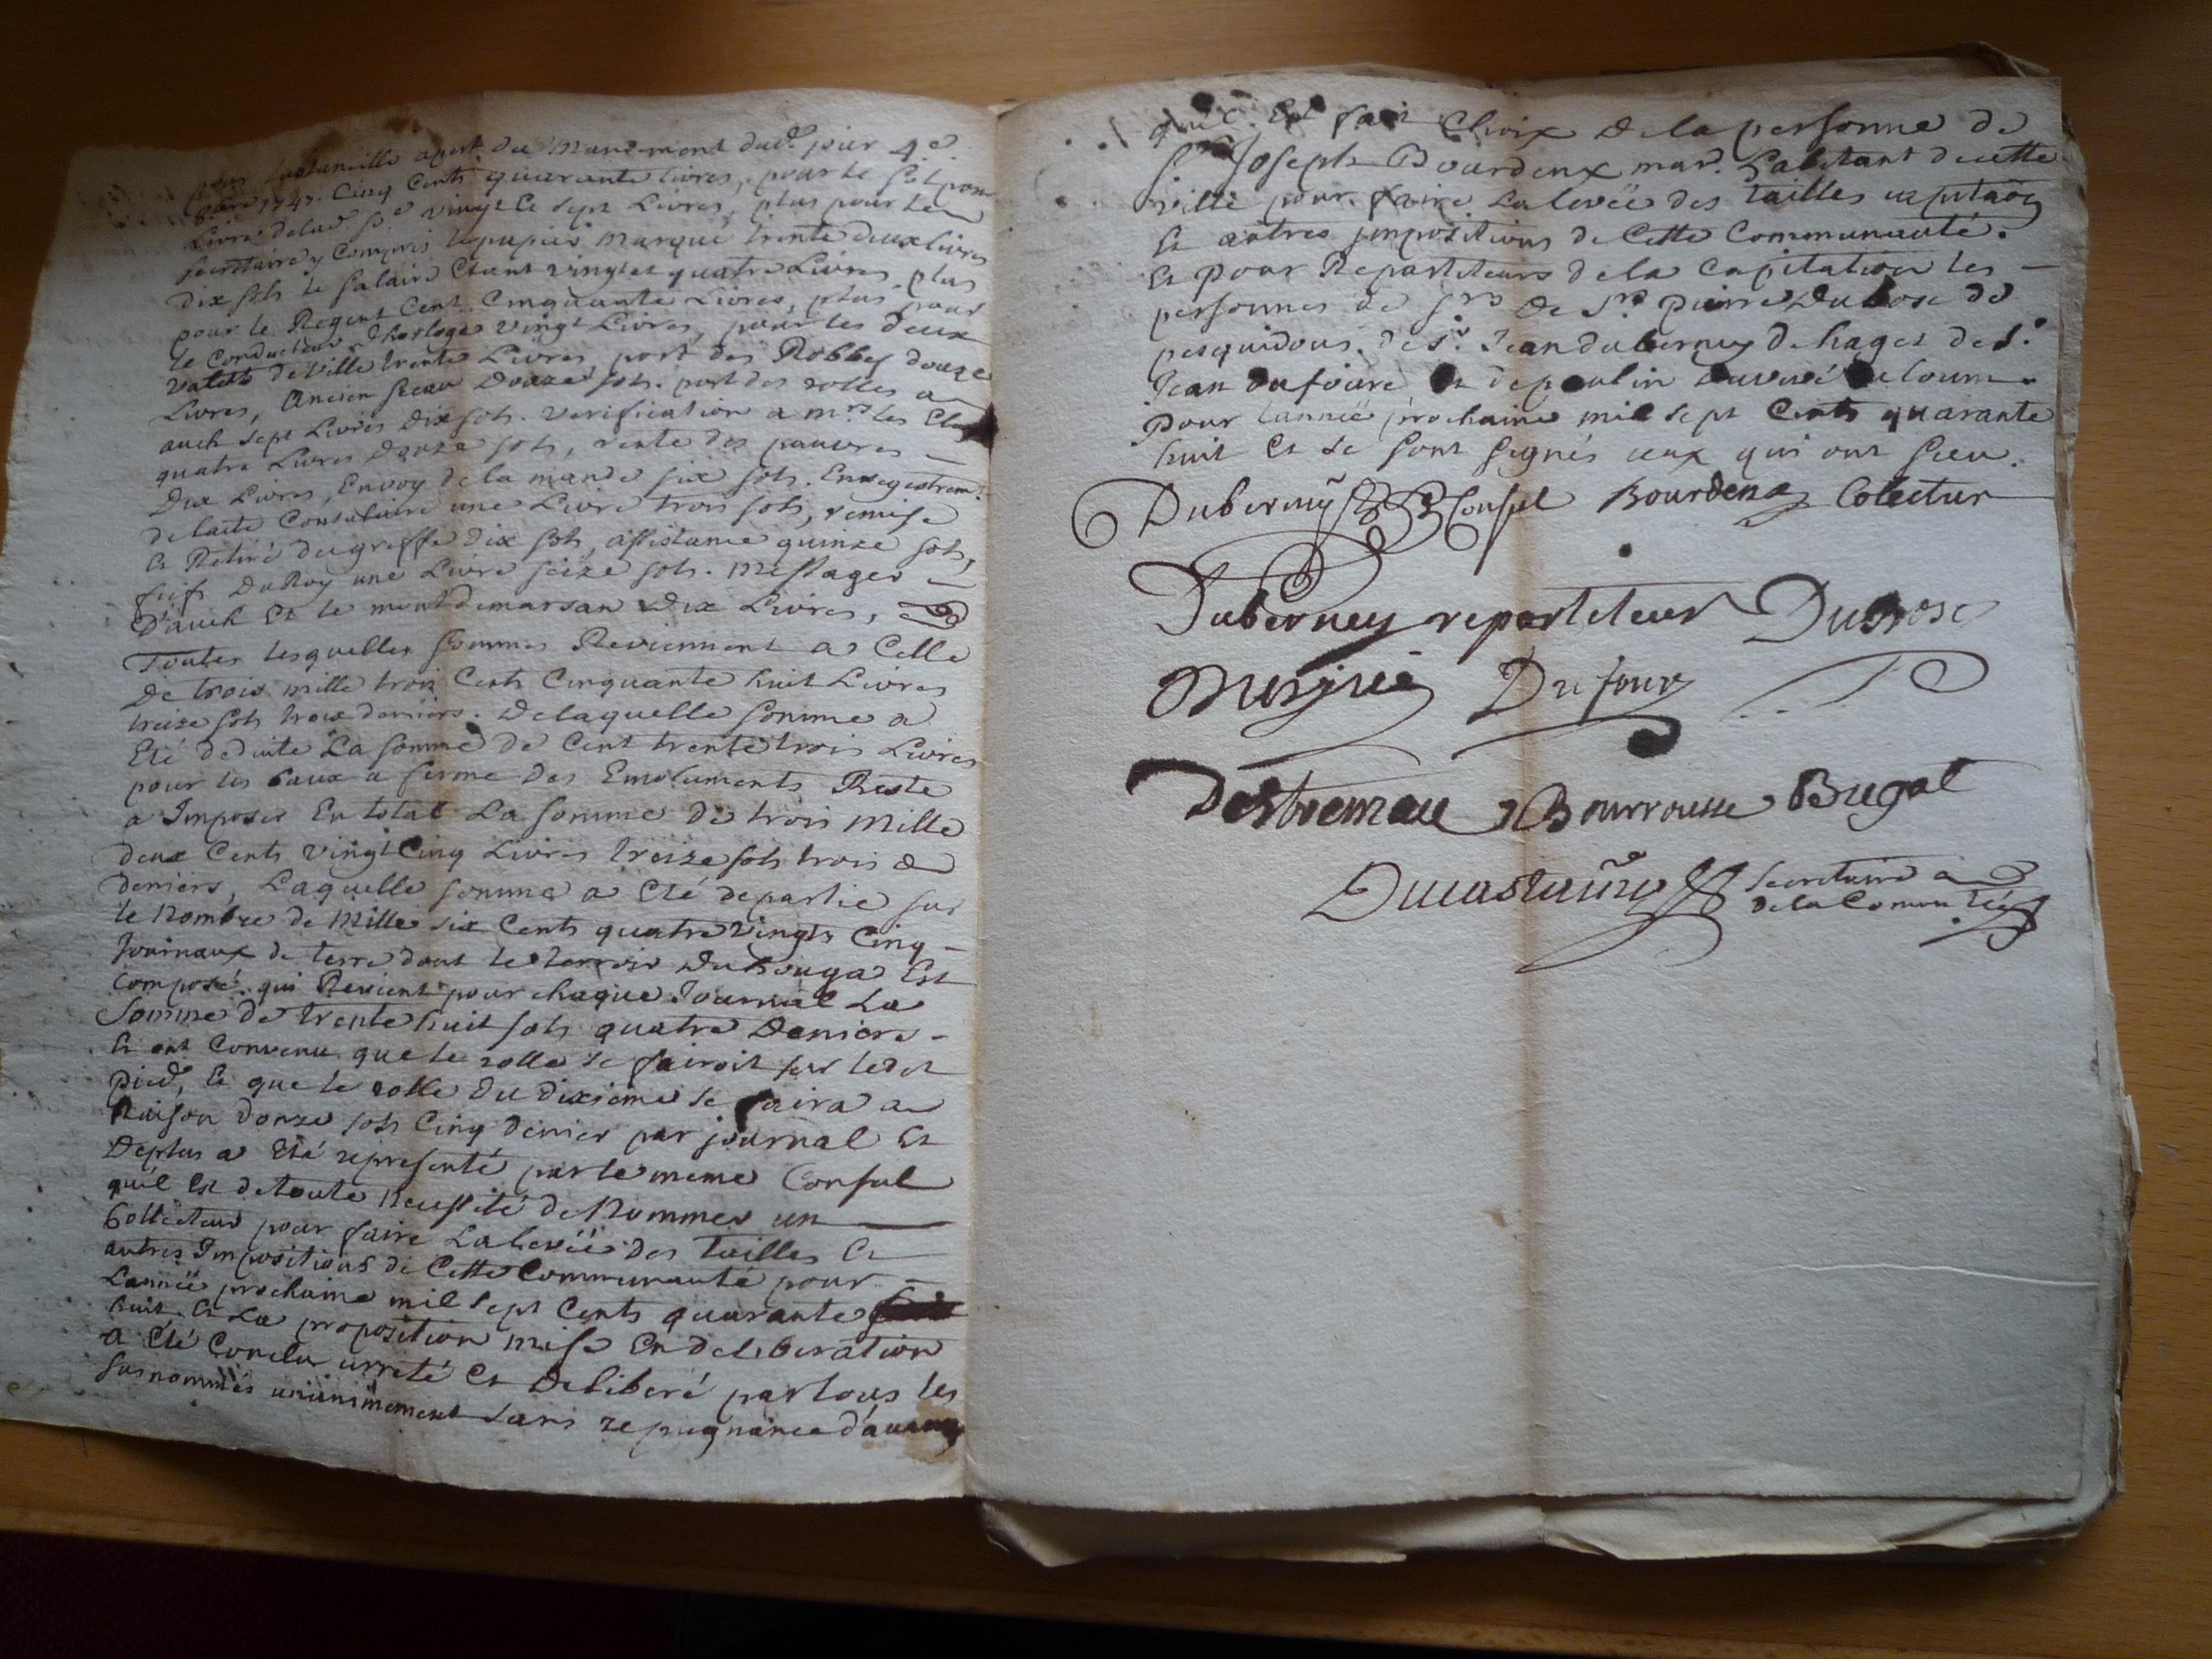 pour lustancille apert du mandement dud. jour 4e.
8bre 1747. Cinq Cents quarante livres, pour le sol pour
Livre delad. So.e vingt et sept Livres, plus pour le
secretaire y Compris le papier marqué trente deux livres
dix sols le salaire Etant vingt et quatre Livres, plus
pour le Regent Cent Cinquante Livres, plus pour
le Conducteur d'horloge vingt Livres, pour les deux
valets de ville trente Livres, port des Robbes douze
Livres, ancien sceau Douze sols. port des rolles a
auch sept Livres dix sols. verification a mrs. les
quatre Livres douze sols, rente des pauvres
Dix Livres, Envoy de la mande six sols. Enregistrem.t
de lacte Consulaire une Livre trois sols, remise
et Retiré du greffe dix sols, assistance quinze sols,
fiefs Du Roy une Livre seize sols. messager
D'auch Et le mont demarsan Dix Livres,
Toutes lesquelles sommes Reviennent a Celle
De trois mille trois Cents Cinquante huit Livres
treize sols trois deniers. Delaquelle somme a
Eté deduite La somme de Cent trente trois Livres
pour les baux a ferme des Emoluments Reste
a Imposer En total La somme de trois mille
deux Cents vingt Cinq Livres treize sols trois
deniers, Laquelle somme a Eté departie sur
le nombre de Mille six Cents quatre vingts Cinq
Journaux de terre dont le terroir Du houga Est
composé. qui Revient pour chaque Journal La
Somme de trente huit sols quatre Deniers
Et ont Convenu que le rolle se fairoit sur ledet
pied, Et que le rolle Du dixieme se faira a
Raison donze sols Cinq denier par journal Et
Deplus a Eté representé par le meme Consul
quil Est detoute necessité de Nommer un
Collecteur pour faire La levée des Tailles Et
autres Impositions de Cette Communauté pour
Lannée prochaine mil sept Cents quarante
huit. Et La proposition mise En deliberation
a Eté Conclu arreté Et Deliberé par tous les
susnommés unanimement sans repugnance d'aucun
quil. Est fait Choix de la personne de
Sr. Joseph Bourdenx mar. habitant de cette
ville pour faire La levée des tailles capitaôn
Et autres impositions de Cette Communauté.
Et pour Repartiteurs de la Capitation les
personnes de Srs De Sr. pierre Dubosc de
pesquidous. de Sr. Jean duberney de haget de S.
Jean dufoure Et de paulin
Pour lannée prochaine mil sept Cents quarante
huit Et se sont signés ceux qui ont sceu.
Duberney Consul Bourdenx Colectur
Duberney repartiteur Dubosc
Dufour
Destremau Bourrousse Bugat
Ducastaing Secretaire
de la Comonté